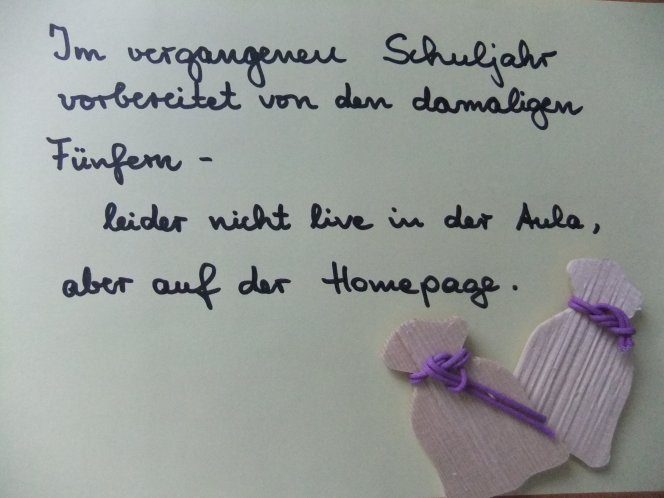 Im vergangenen Schuljahr
vorbereitet von den damaligen
Fünfern -
leider nicht live in der Aula,
aber auf der Homepage.